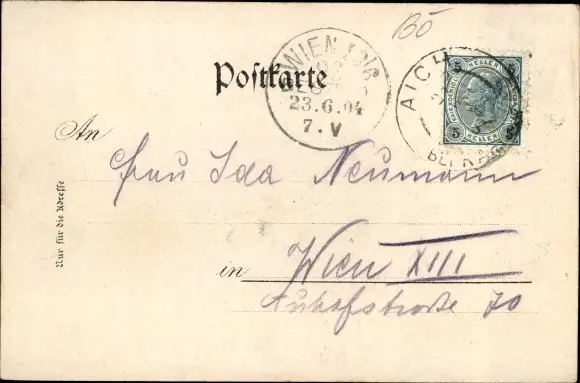 BÖ
Postkarte
WIEN
23.6.04
7.V
AICH
BEI KA
5 HELLER 5
5 HELLER 5
An
Frau Ida Neumann
in Wien XIII
Auhofstraße 70
Nur für die Adresse